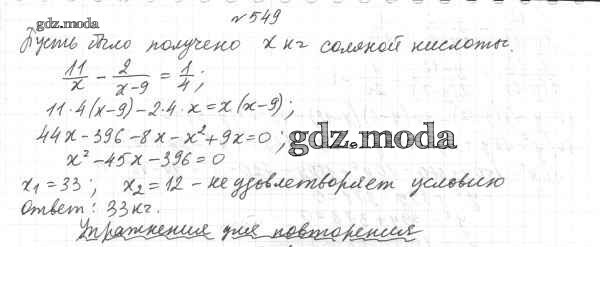 № 549
gdz.moda
Пусть было получено x кг соляной кислоты.
11/x − 2/(x−9) = 1/4;
11·4(x−9)−2·4·x=x(x−9);
44x−396−8x−x²+9x=0;
gdz.moda
x²−45x−396=0
x₁=33; x₂=12 − не удовлетворяет условию
Ответ: 33 кг.
Упражнения для повторения